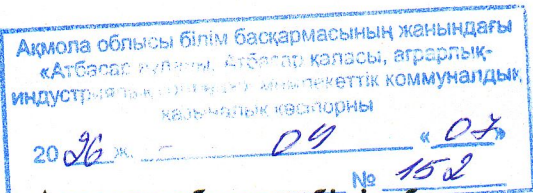 Ақмола облысы білім басқармасының жанындағы
«Атбасар ауданы, Атбасар қаласы, аграрлық-
индустриялық мемлекеттік коммуналдық
қазыналық кәсіпорны
2026 ж. 04 «07»
№ 152